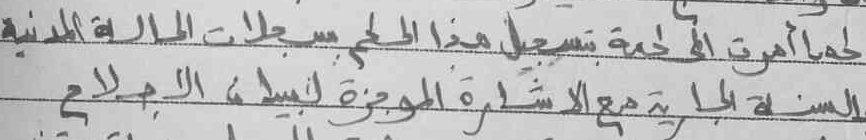 كما أمرت المحكمة بتسجيل هذا الحكم بسجلات الحالة المدنية
السنة الجارية مع الاشارة الموجزة لبيان الإصلاح